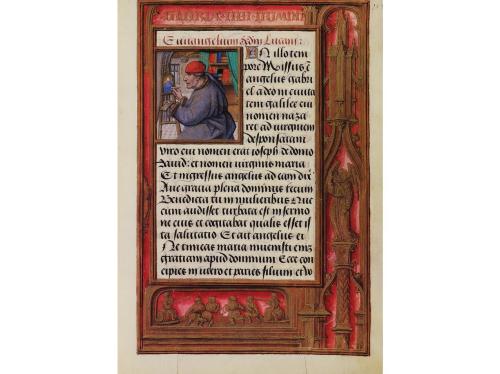 Euuangelium scdm Lucam:
In illo tem
pore Missus ē
angelus gabri
el a deo in ciuita
tem galilee cui
nomen naza
ret ad uirginem
desponsatam
uiro cui nomen erat ioseph de domo
dauid: et nomen uirginis maria
Et ingressus angelus ad eam dix̄
Aue gracia plena dominus tecum
Benedicta tu in mulieribus Que
cum audisset turbata est in sermo
ne eius et cogitabat qualis esset is
ta salutatio Et ait angelus ei
Ne timeas maria inuenisti em̄
gratiam apud dominum Ecce con
cipies in utero et paries filium et uo